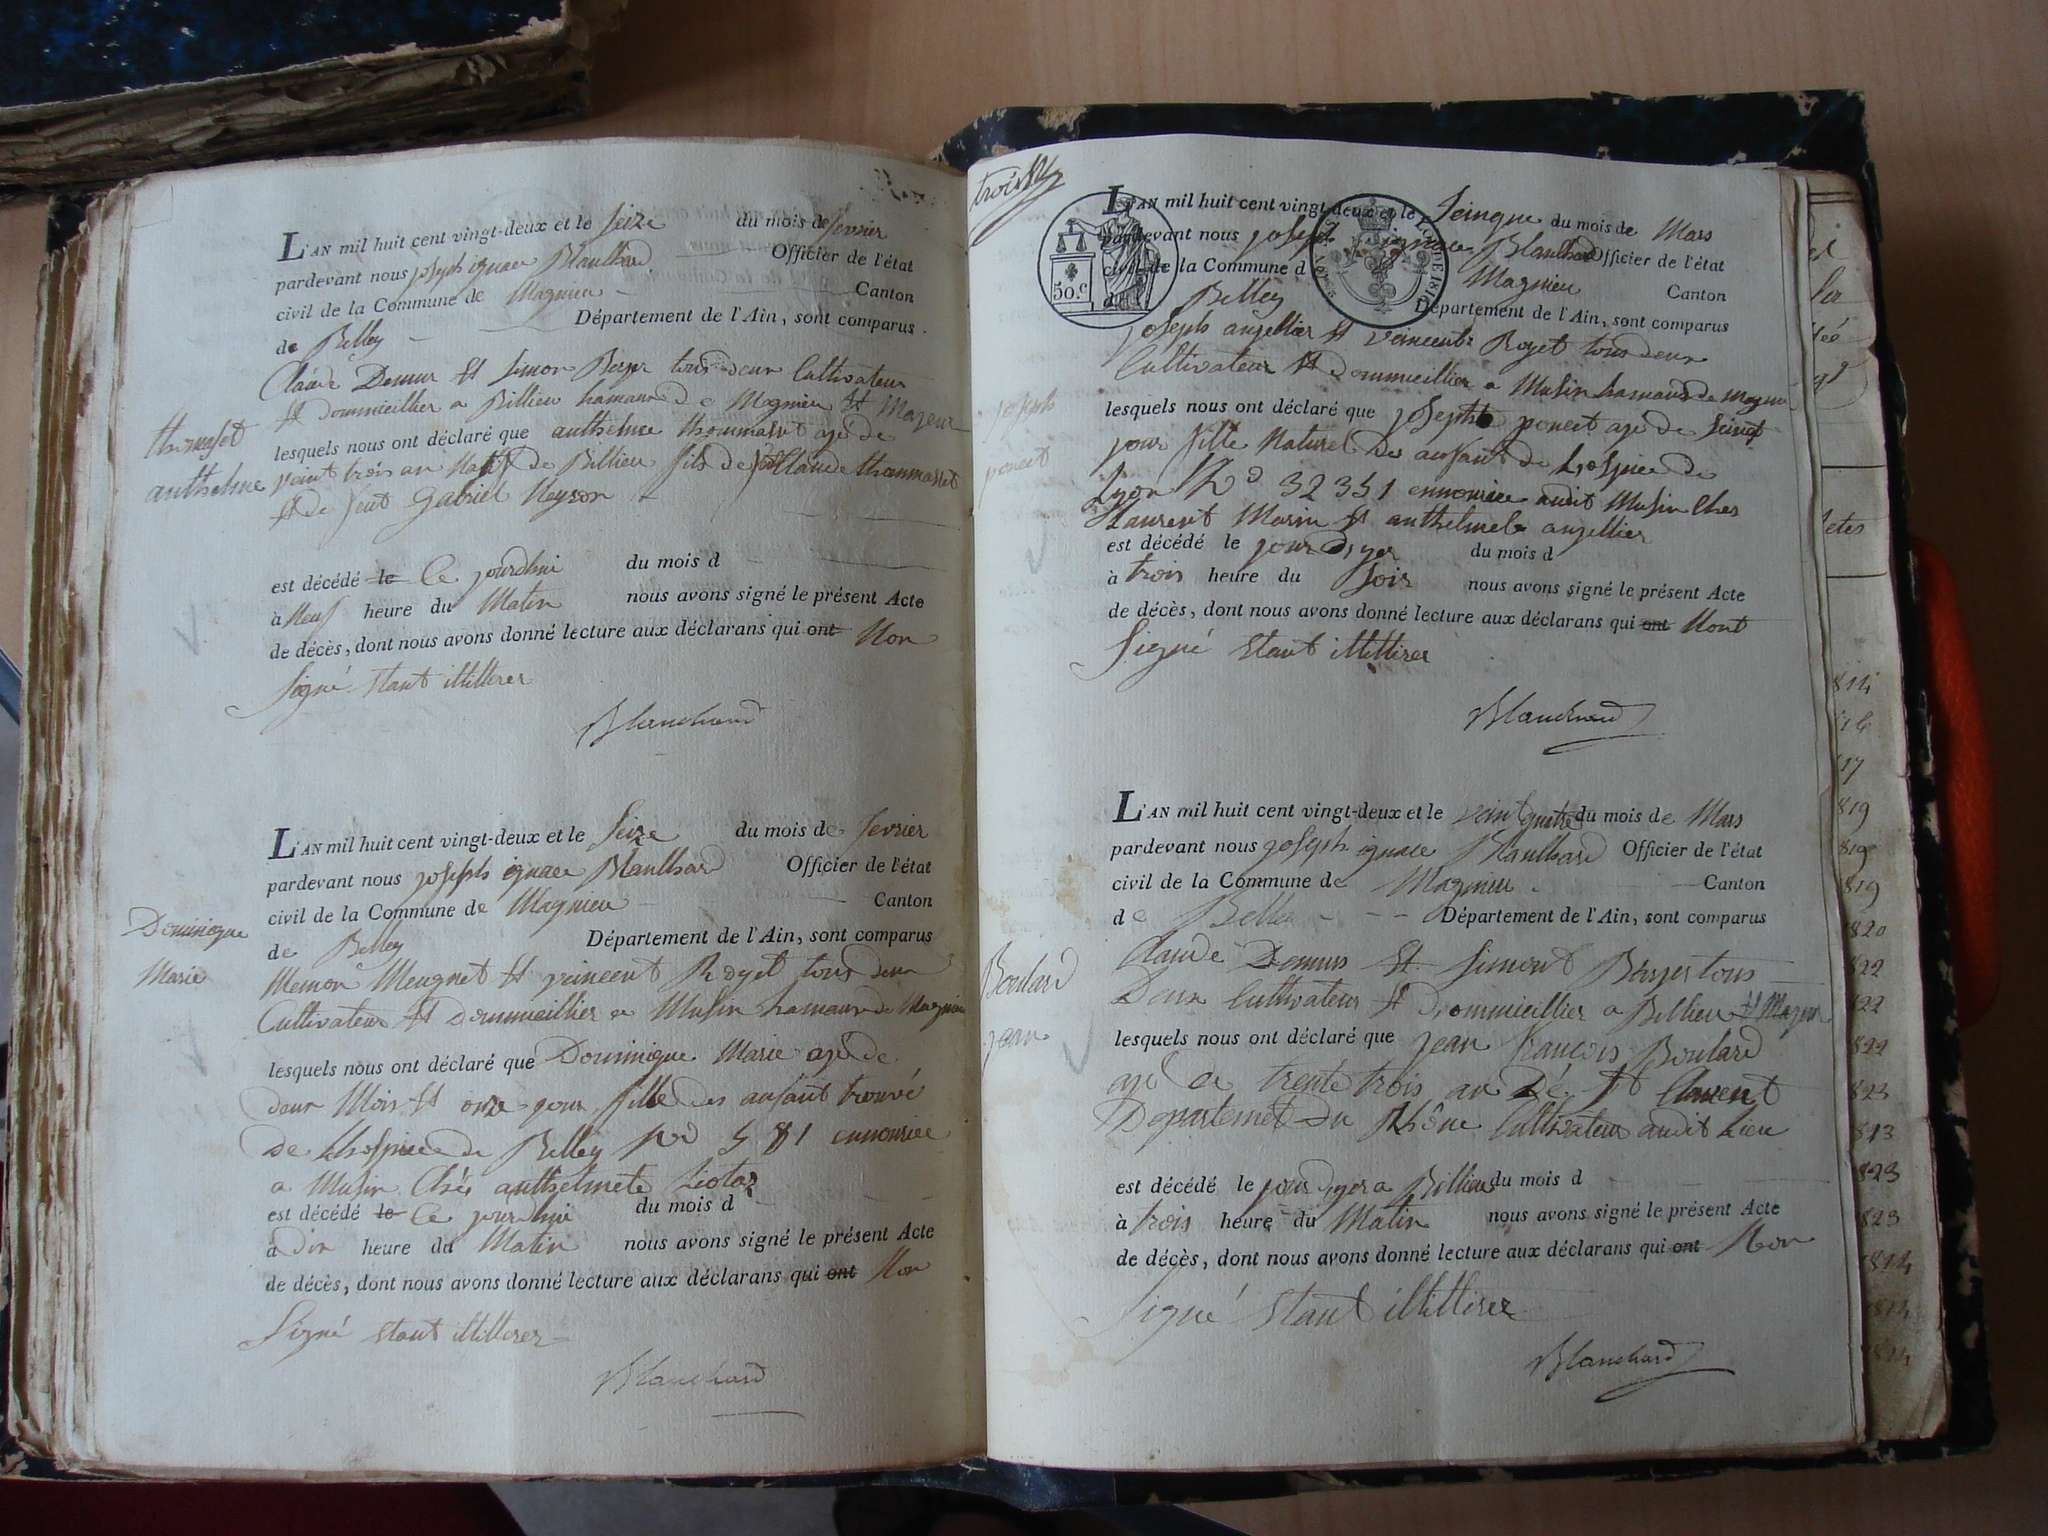 L'AN mil huit cent vingt-deux et le Seize du mois de fevrier
pardevant nous joseph ignace Blanchard Officier de l'état
civil de la Commune de Magnieu Canton
de Belley Département de l'Ain, sont comparus
Claude Demur et Simon Beyer tous deux Cultivateur
et dommieillier a Billieu hamaud de Magnieu et Majeur
thomaset
anthelme
lesquels nous ont déclaré que anthelme thommaset agé de
veint trois an de Billieu fils de Claude thommasset
et de feut Gabriel Neyron
est décédé le Ce jourdhui du mois d
à Neuf heure du Matin nous avons signé le présent Acte
de décès, dont nous avons donné lecture aux déclarans qui ont Non
Signé Etant illitterer
Blanchard
L'AN mil huit cent vingt-deux et le Seize du mois de fevrier
pardevant nous joseph ignace Blanchard Officier de l'état
civil de la Commune de Magnieu Canton
de Belley Département de l'Ain, sont comparus
Dominique
Marie
Memon Meugnet et veincent Royet tous deux
Cultivateur et Dommieillier a Musin hamaud de Magnieu
lesquels nous ont déclaré que Dominique Marie agé de
deux Mois et onze jour fille des anfant trouvé
de Lhospice de Belley No 581 ennourice
a Musin Chés anthelmete
est décédé le Ce jourdhui du mois d
à dix heure du Matin nous avons signé le présent Acte
de décès, dont nous avons donné lecture aux déclarans qui ont Non
Signé Etant illitterer
Blanchard
L'AN mil huit cent vingt-deux et le Seinque du mois de Mars
pardevant nous joseph ignace Blanchard Officier de l'état
civil de la Commune d Magnieu Canton
50.c
de Belley Département de l'Ain, sont comparus
joseph angellier et veincent Royet tous deux
Cultivateur et dommieillier a Musin hamaud de Magnieu
joseph
poncet
lesquels nous ont déclaré que joseph poncet agé de Seinq
jour fille Naturel des anfant de Lospice de
Lyon No 32351 ennourice audit Musin Ches
Laurent Marin et anthelme angellier
est décédé le jour Dyer du mois d
à trois heure du Soir nous avons signé le présent Acte
de décès, dont nous avons donné lecture aux déclarans qui ont Nont
Signé Etant illitterer
Blanchard
L'AN mil huit cent vingt-deux et le veint quatre du mois de Mars
pardevant nous joseph ignace Blanchard Officier de l'état
civil de la Commune de Magnieu Canton
de Belle Département de l'Ain, sont comparus
Claude Demur et Simont Beyer tous
Deux Cultivateur et Dommieillier a Billieu et Majeur
Boulard
jean
lesquels nous ont déclaré que jean francois Boulard
agé de trente trois an Dé St Laurent
Departemet du Rhône Cultivateur audit Lieu
est décédé le jour dyer a Billieu du mois d
à trois heure du Matin nous avons signé le présent Acte
de décès, dont nous avons donné lecture aux déclarans qui ont Non
Signé Etant illitterer
Blanchard